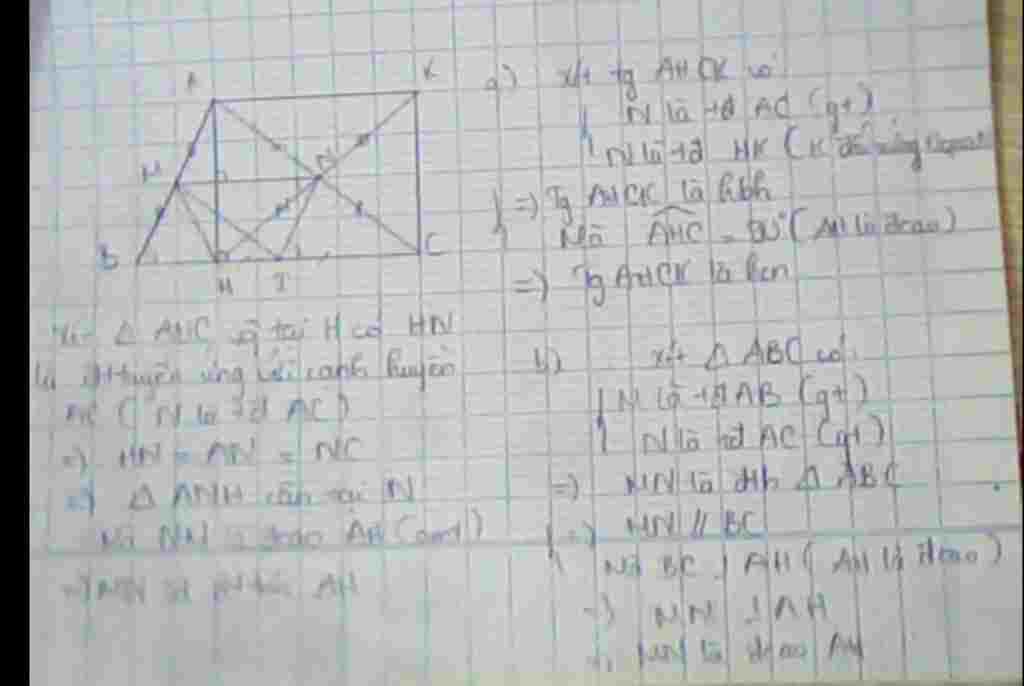 A
K
M
N
B
H
I
C
a) xét tg AHCK có
N là tđ AC (gt)
N là tđ HK (K đối xứng
=) Tg AHCK là hbh
Mà AHC = 90° (AH là đcao)
=) Tg AHCK là hcn
b) xét △ ABC có
M là tđ AB (gt)
N là tđ AC (gt)
=) MN là đtb △ ABC
=) MN // BC
Mà BC ⊥ AH ( AH là đcao)
=) MN ⊥ AH
MN là đcao AH
△ AHC tại H có HN
là ứng với cạnh huyền
AC ( N là tđ AC)
=) HN = AN = NC
=) △ ANH cân tại N
Mà đcao AH (cmt)
=) MN AH